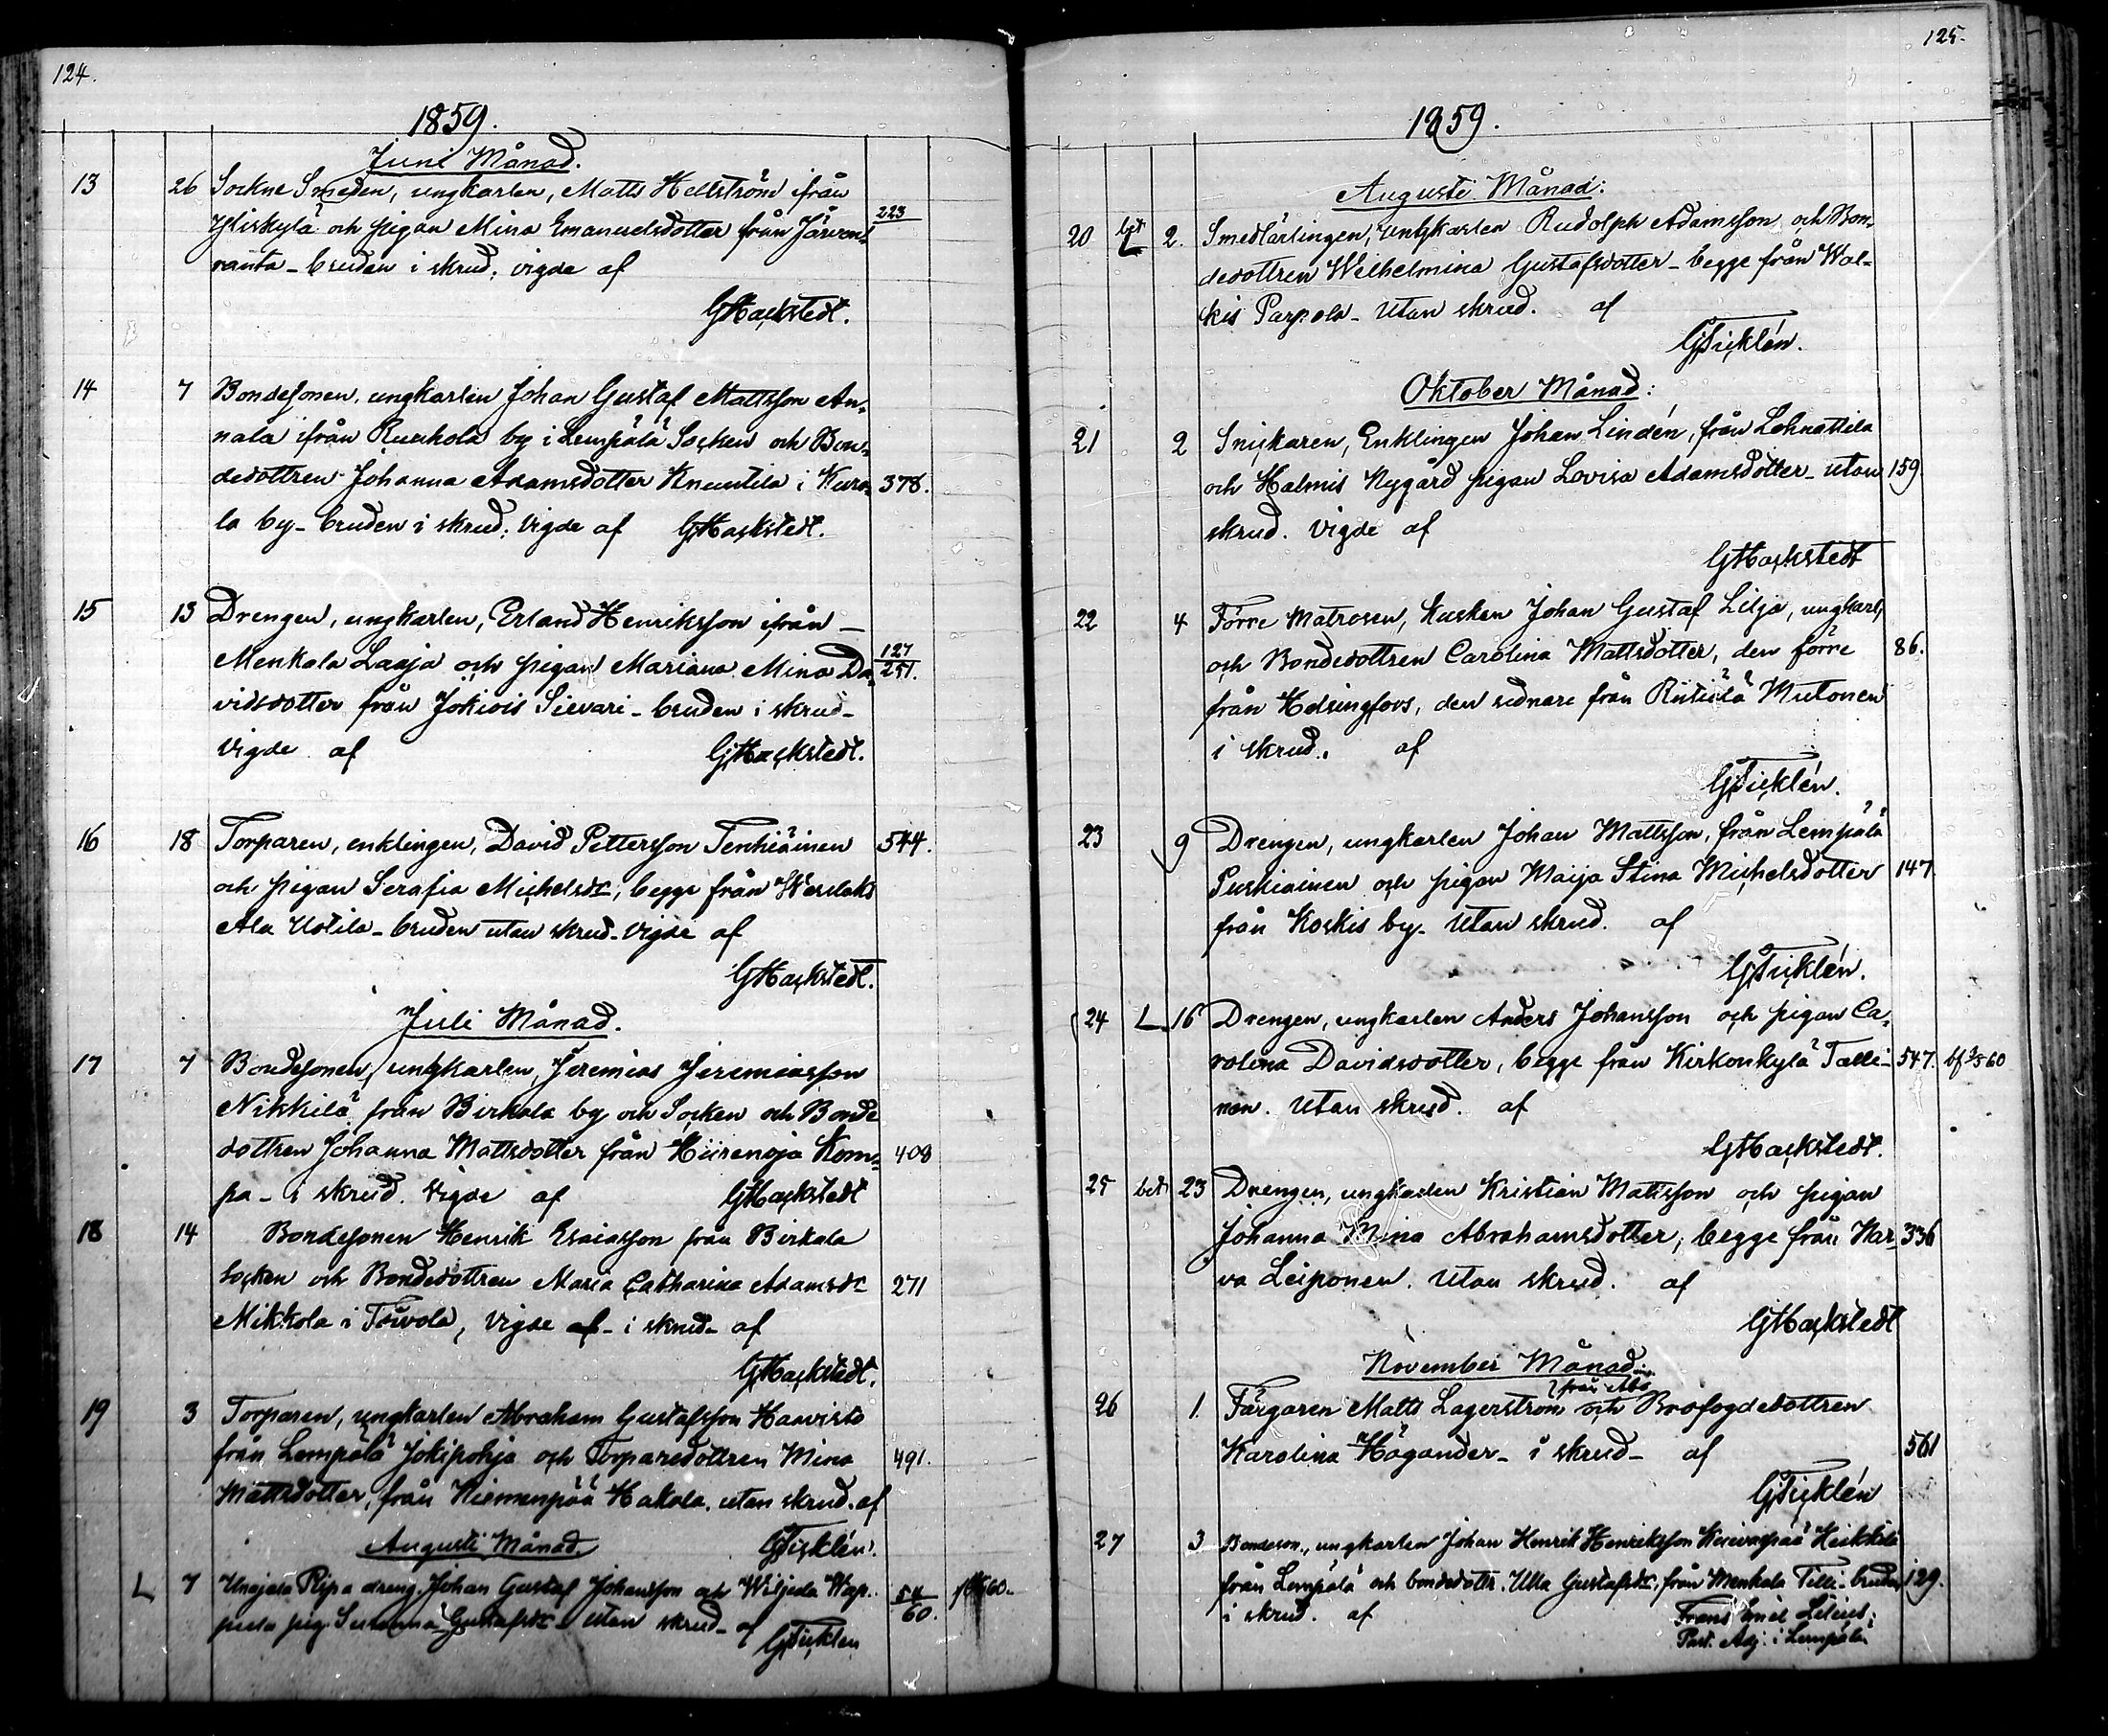 124.
1859.
Juni Månad.
13 26 Sockne Smeden, ungkarlen, Matts Hellström ifrån
Yliskylä och pigan Mina Emanuelsdotter från Järven- 223
ranta - bruden i skrud. vigde af
G Hackstedt.
14 7 Bondesonen, ungkarlen Johan Gustaf Mattsson An-
nala ifrån Kuokola by i Lempälä Socken och Bon-
dedottren Johanna Adamsdotter Knuutila i Kuro- 378.
la by - bruden i skrud. Vigde af G Hackstedt.
15 13 Drengen, ungkarlen, Erland Henriksson ifrån -
Menkala Laaja och pigan Mariana Mina Da- 127
251.
vidsdotter från Jokiois Sievari - bruden i skrud -
Vigde af G Hackstedt.
16 18 Torparen, enklingen, David Pettersson Tenhiäinen 544.
och pigan Serafia Michelsdr, begge från Wesilaks
Ala Uotila - bruden utan skrud - Vigde af
G Hackstedt.
Juli Månad.
17 7 Bondesonen, ungkarlen, Jeremias Jeremiasson
Nikkilä från Birkala by och Socken och Bonde
dottren Johanna Mattsdotter från Hiirenoja Kom- 408
pa - i skrud. Vigde af G Hackstedt
18 14 Bondesonen Henrik Esaiasson från Birkala
Socken och Bondedottren Maria Catharina Adamsdr 271
Mikkola i Toivola, Vigde af - i skrud - af
G Hackstedt.
19 3 Torparen, ungkarlen Abraham Gustafsson Haavisto
från Lempälä Jokipohja och Torparedottren Mina 491.
Mattsdotter, från Niemenpää Hakala. utan skrud. af
Augusti Månad. G Ticklén.
L 7 Unajala Pispa dreng. Johan Gustaf Johansson och Wiljada
pig. Susanna Gustafsdr - utan skrud - af 60.
G Ticklen
125.
1859.
Augusti Månad:
20 bet. L 2. Smedlärlingen, ungkarlen Rudolph Adamsson och Bon-
dedottren Wilhelmina Gustafsdotter - begge från Wal-
kis Parpola - Utan skrud. af
G Ticklén.
Oktober Månad:
21 2 Snickaren, Enklingen Johan Lindén, från Lahnattila
och Halmis Nygård pigan Lovisa Adamsdotter - utan 159.
skrud. Vigde af
G Hackstedt
22 4 Förre Matrosen, Kusken Johan Gustaf Lilja, ungkarl,
och Bondedottren Carolina Mattsdotter, den förre 86.
från Helsingfors, den sednare från Mutonen
i skrud. af
G Ticklén.
23 9 Drengen, ungkarlen Johan Mattsson, från Lempälä
Puskiainen och pigan Maija Stina Michelsdotter 147
från Koskis by. Utan skrud. af
G Ticklén.
24 L 16 Drengen, ungkarlen Anders Johansson och pigan Ca-
rolina Davidsdotter, begge från Kirkonkylä Talli- 547.
nen. Utan skrud. af
G Hackstedt.
25 bet 23 Drengen, ungkarlen Kristian Mattsson och pigan
Johanna Mina Abrahamsdotter, begge från Nar- 336
va Leiponen. Utan skrud. af
G Hackstedt
November Månad
från Åbo
26 1. Färgaren Matts Lagerström och Brofogdedottren
Karolina Högander - i skrud - af 561
G Ticklén
27 3 Bondeson., ungkarlen Johan Henrik Henriksson Heikkilä
från Lempälä och bondedottr. Ulla Gustafsdr, från Menkala Tilli - bruden 129.
i skrud. af Frans Emil Lilius,
Past. Adj. i Lempälä